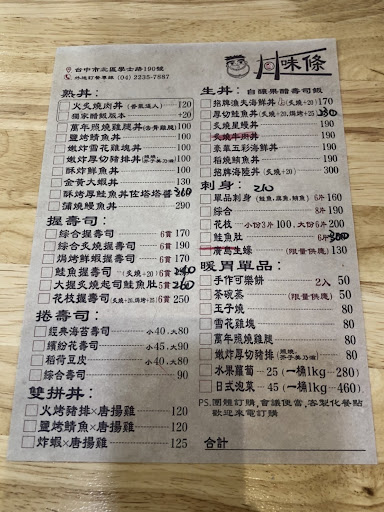 台中市北區學士路190號
外送訂餐專線 (04) 2235-7887
丼味條
熟丼:
火炙燒肉丼(香氣逼人) 100
獨家醋飯版本 +20
萬年照燒雞腿丼(去骨雞腿) 100
鹽烤鯖魚丼 100
嫩炸雪花雞塊丼 100
嫩炸厚切豬排丼 100
酥炸鮮魚丼 100
金黃大蝦丼 130
酥烤厚鮭魚丼佐塔塔醬 260
蒲燒鰻魚丼 290
握壽司:
綜合握壽司 6貫 170
綜合炙燒握壽司 6貫 190
焗烤鮮蝦握壽司 6貫 190
鮭魚握壽司 (炙燒+20) 6貫 240
大握炙燒起司鮭魚肚 5貫 260
花枝握壽司(炙燒+25,焗烤+25) 6貫 250
捲壽司:
經典海苔壽司 小40.大80
繽紛花壽司 小45.大90
稻荷豆皮 小40.大80
綜合壽司 90
雙拼丼:
火烤豬排×唐揚雞 120
鹽烤鯖魚×唐揚雞 120
炸蝦×唐揚雞 125
生丼: 自釀果醋壽司飯
招牌漁夫海鮮丼 (炙燒+20) 170
厚切鮭魚丼 (炙燒+20)
炙燒星鰻丼 190
炙燒牛丼 190
豪華五彩海鮮丼 190
稻燒鯖魚丼 190
招牌海陸丼 (炙燒+20) 300
刺身: 210
單品刺身(鮭魚,旗魚,鯛魚) 6片 160
綜合 8片 190
花枝 小份3片100.大份6片 200
鮭魚肚 6片 300
廣島生蠔 (限量供應) 130
暖胃單品:
手作可樂餅 2入 50
茶碗蒸 (限量供應) 50
玉子燒 50
雪花雞塊 80
萬年照燒雞腿 80
嫩炸厚切豬排 80
水果蘿蔔 25 (一桶1kg 280)
日式泡菜 45 (一桶1kg 460)
PS.團體訂購,會議便當,客製化餐點
歡迎來電訂購
合計